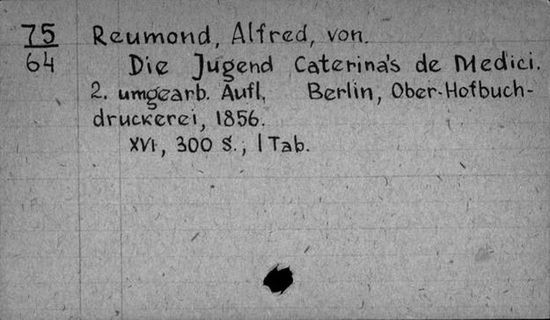 75 Reumond, Alfred, von.
64 Die Jugend Caterina's de Medici.
2. umgearb. Aufl. Berlin, Ober-Hofbuch-
druckerei, 1856.
XVI, 300 S.; 1 Tab.